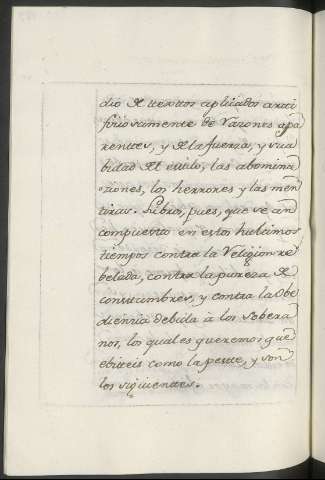 dio de textos aplicados arti
ficiosamente de razones apa
rentes, y de la fuerza, y sua
bidad del estilo, las abomina
ciones, los herrores y las men
tiras. Libros, pues, que se an
compuesto en estos ultimos
tiempos contra la Religion re
belada, contra la pureza de
constumbres, y contra la Obe
diencia debida à los Sobera
nos, los quales queremos que
ebiteis como la peste, y son
los siguientes.